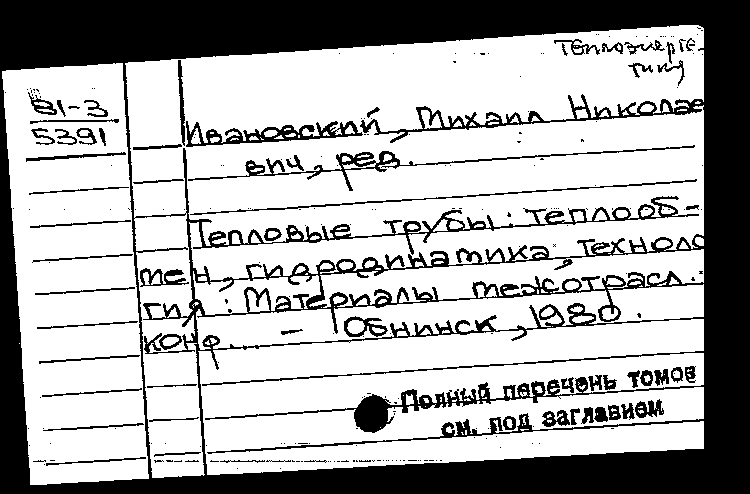 Теплоэнерге-
тика
81-3
5391
Ивановский, Михаил Николае
вич, ред.
Тепловые трубы: теплооб-
мен, гидродинамика, техноло
гия: Материалы межотрасл.
конф... - Обнинск, 1980.
Полный перечень томов
см. под заглавием